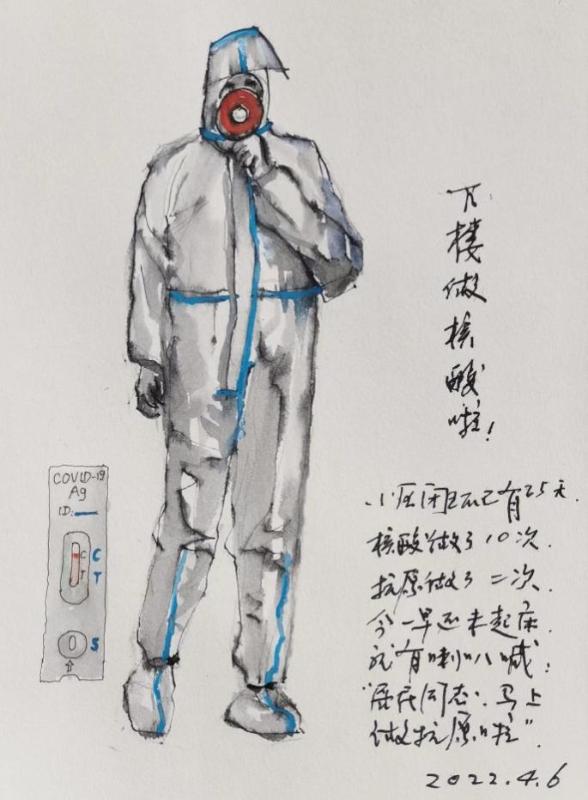 下楼做核酸啦!
小区闭环已有25天.
核酸做了10次.
抗原做了二次.
今一早还未起床.
就有喇叭喊:
"居民同志.马上
做抗原啦".
2022.4.6
COVID-19
Ag
ID:
C
T
C
T
S